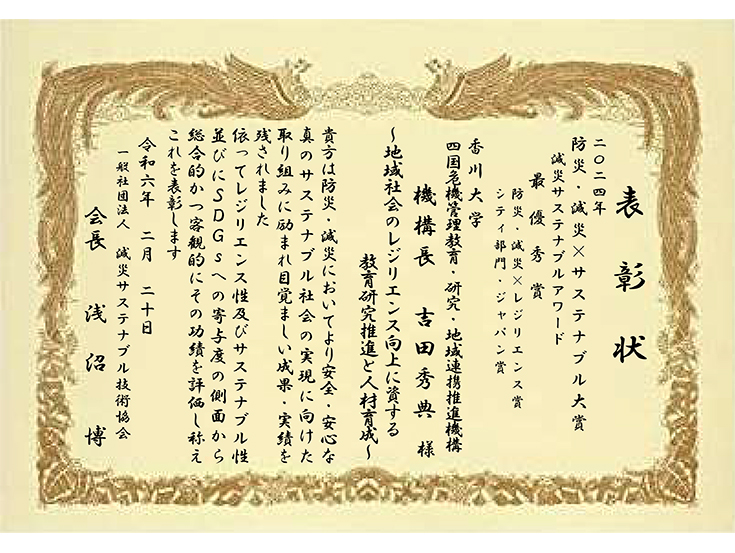 表彰状
二〇二四年
防災・減災×サステナブル大賞
減災サステナブルアワード
最優秀賞
防災・減災×レジリエンス賞
シティ部門・ジャパン賞
香川大学
四国危機管理教育・研究・地域連携推進機構
機構長 吉田秀典 様
～地域社会のレジリエンス向上に資する
教育研究推進と人材育成～
貴方は防災・減災においてより安全・安心な
真のサステナブル社会の実現に向けた
取り組みに励まれ目覚ましい成果・実績を
残されました
依ってレジリエンス性及びサステナブル性
並びにSDGsへの寄与度の側面から
総合的かつ客観的にその功績を評価し称え
これを表彰します
令和六年 二月 二十日
一般社団法人 減災サステナブル技術協会
会長 浅沼 博